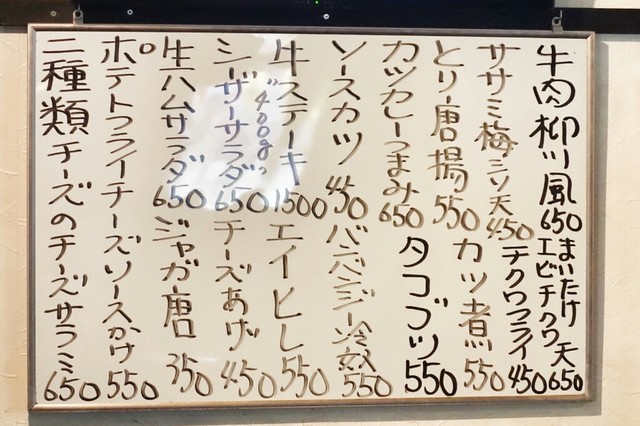 牛肉柳川風650
まいたけエビチクワ天650
ササミ梅ミソ天450
チクワフライ450
とり唐揚550
カツ煮550
カツカレーつまみ650
タコブツ550
ソースカツ450
バンバンジー冷奴550
牛ステーキ"400g"1500
エイヒレ550
シーザーサラダ650
チーズあげ450
生ハムサラダ650
ジャガ唐350
ポテトフライチーズソースかけ550
二種類チーズのチーズサラミ650